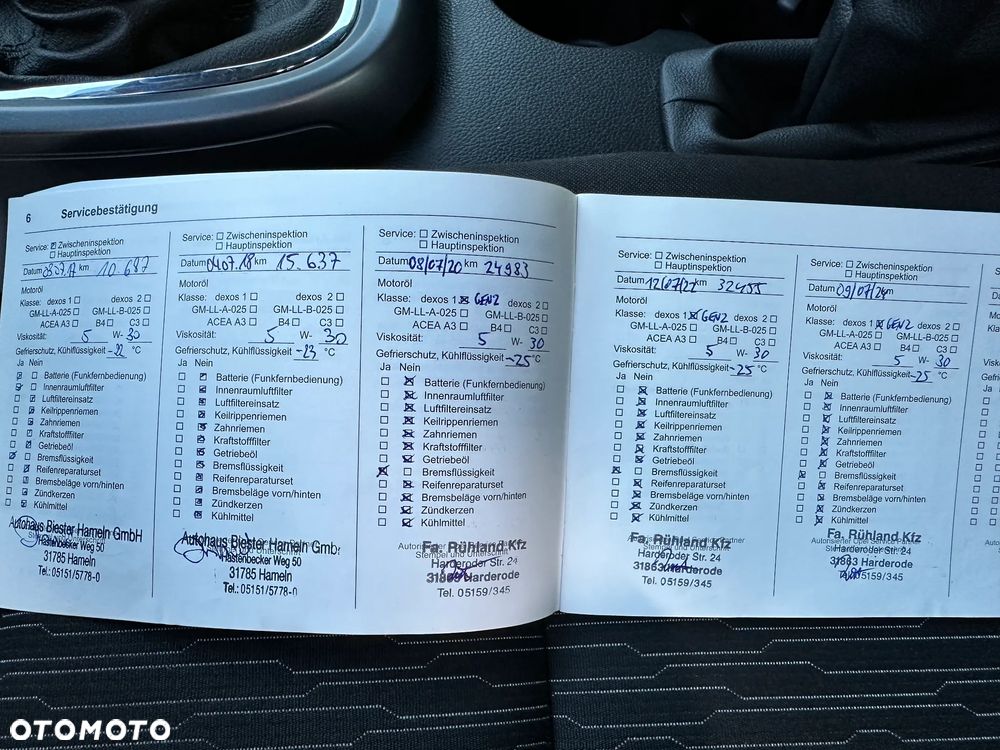 6 Servicebestätigung
Service: ☑ Zwischeninspektion
☐ Hauptinspektion
Datum 03.07.17 km 10.687
Motoröl
Klasse: dexos 1 ☐ dexos 2 ☐
GM-LL-A-025 ☐ GM-LL-B-025 ☐
ACEA A3 ☐ B4 ☐ C3 ☐
Viskosität: 5 W- 30
Gefrierschutz, Kühlflüssigkeit -32 °C
Ja Nein
Batterie (Funkfernbedienung)
Innenraumluftfilter
Luftfiltereinsatz
Keilrippenriemen
Zahnriemen
Kraftstofffilter
Getriebeöl
Bremsflüssigkeit
Reifenreparaturset
Bremsbeläge vorn/hinten
Zündkerzen
Kühlmittel
Autohaus Biester Hameln GmbH
Hastenbecker Weg 50
31785 Hameln
Tel.: 05151/5778-0
Service: ☐ Zwischeninspektion
☐ Hauptinspektion
Datum 04.07.18 km 15.637
Motoröl
Klasse: dexos 1 ☐ dexos 2 ☐
GM-LL-A-025 ☐ GM-LL-B-025 ☐
ACEA A3 ☐ B4 ☐ C3 ☐
Viskosität: 5 W- 30
Gefrierschutz, Kühlflüssigkeit -23 °C
Ja Nein
Batterie (Funkfernbedienung)
Innenraumluftfilter
Luftfiltereinsatz
Keilrippenriemen
Zahnriemen
Kraftstofffilter
Getriebeöl
Bremsflüssigkeit
Reifenreparaturset
Bremsbeläge vorn/hinten
Zündkerzen
Kühlmittel
Autohaus Biester Hameln GmbH
Hastenbecker Weg 50
31785 Hameln
Tel.: 05151/5778-0
Service: ☐ Zwischeninspektion
☐ Hauptinspektion
Datum 08/07/20 km 24983
Motoröl
Klasse: dexos 1 ☒ GEN2 dexos 2 ☐
GM-LL-A-025 ☐ GM-LL-B-025 ☐
ACEA A3 ☐ B4 ☐ C3 ☐
Viskosität: 5 W- 30
Gefrierschutz, Kühlflüssigkeit -25 °C
Ja Nein
Batterie (Funkfernbedienung)
Innenraumluftfilter
Luftfiltereinsatz
Keilrippenriemen
Zahnriemen
Kraftstofffilter
Getriebeöl
Bremsflüssigkeit
Reifenreparaturset
Bremsbeläge vorn/hinten
Zündkerzen
Kühlmittel
Fa. Rühland Kfz
Stempel und Unterschrift
Harderoder Str. 24
31863 Harderode
Tel. 05159/345
Service: ☐ Zwischeninspektion
☐ Hauptinspektion
Datum 12/07/22 km 32455
Motoröl
Klasse: dexos 1 ☒ GEN2 dexos 2 ☐
GM-LL-A-025 ☐ GM-LL-B-025 ☐
ACEA A3 ☐ B4 ☐ C3 ☐
Viskosität: 5 W- 30
Gefrierschutz, Kühlflüssigkeit -25 °C
Ja Nein
Batterie (Funkfernbedienung)
Innenraumluftfilter
Luftfiltereinsatz
Keilrippenriemen
Zahnriemen
Kraftstofffilter
Getriebeöl
Bremsflüssigkeit
Reifenreparaturset
Bremsbeläge vorn/hinten
Zündkerzen
Kühlmittel
Fa. Rühland Kfz
Stempel und Unterschrift
Harderoder Str. 24
31863 Harderode
Tel. 05159/345
Service: ☐ Zwischeninspektion
☐ Hauptinspektion
Datum 09/07/24 km
Motoröl
Klasse: dexos 1 ☒ GEN2 dexos 2 ☐
GM-LL-A-025 ☐ GM-LL-B-025 ☐
ACEA A3 ☐ B4 ☐ C3 ☐
Viskosität: 5 W- 30
Gefrierschutz, Kühlflüssigkeit -25 °C
Ja Nein
Batterie (Funkfernbedienung)
Innenraumluftfilter
Luftfiltereinsatz
Keilrippenriemen
Zahnriemen
Kraftstofffilter
Getriebeöl
Bremsflüssigkeit
Reifenreparaturset
Bremsbeläge vorn/hinten
Zündkerzen
Kühlmittel
Autorisierter Opel Service Partner
Fa. Rühland Kfz
Harderoder Str. 24
31863 Harderode
Tel. 05159/345
OTOMOTO